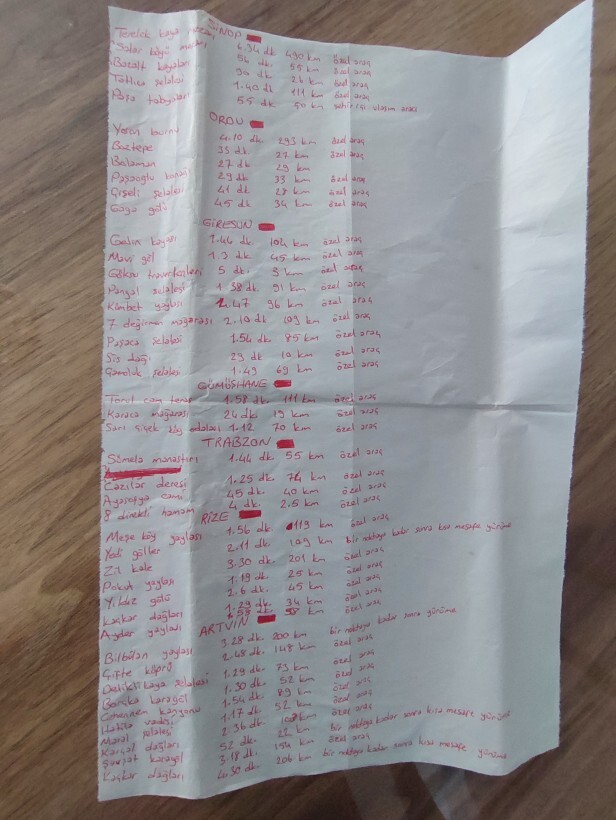 SİNOP
kaya mezarı 6.34 dk 490 km özel araç
köyü 56 55 km özel araç
Bazalt kayaları 30 dk 26 km özel araç
Tatlıca şelalesi 1.40 dk 111 km özel araç
Paşa tabyaları 55 dk 50 km şehir içi ulaşım aracı
ORDU
Yason burnu 4.10 dk 293 km özel araç
Boztepe 35 dk 27 km özel araç
Bolaman 27 dk 29 km
Paşaoğlu konağı 29 dk 33 km özel araç
Çiseli şelalesi 41 dk 28 km özel araç
Gaga gölü 45 dk 34 km özel araç
GİRESUN
Gelin kayası 1.44 dk. 104 km özel araç
Mavi göl 1.3 dk 45 km özel araç
Göksu travertenleri 5 dk 3 km özel araç
şelalesi 1.38 dk 91 km özel araç
Kümbet yaylası 2.47 96 km özel araç
7 değirmen mağarası 2.10 dk 109 km özel araç
şelalesi 1.54 dk 85 km özel araç
Sis dağı 29 dk 10 km özel araç
Gamoluk şelalesi 1.49 69 km özel araç
GÜMÜŞHANE
Torul cam teras 1.58 dk. 111 km özel araç
Karaca mağarası 24 dk 19 km özel araç
Sarı çiçek köy odaları 1.12 70 km özel araç
TRABZON
Sümela manastırı 1.44 dk 55 km özel araç
Cazılar deresi 1.25 dk 74 km özel araç
Ayasofya cami 45 dk. 40 km özel araç
8 direkli hamam 4 dk 2.5 km özel araç
RİZE
Meşe köy yaylası 1.56 dk. 119 km özel araç
Yedi göller 2.11 dk. 109 km bir noktaya kadar sonra kısa mesafe yürüme
Zil kale 3.30 dk 201 km özel araç
Pokut yaylası 1.19 dk. 25 km özel araç
Yıldız gölü 2.6 dk 45 km özel araç
Kaçkar dağları 1.29 dk 34 km özel araç
Ayder yaylası dk. km özel araç
ARTVİN
Bilbilan yaylası 3.28 dk. 200 km bir noktaya kadar sonra yürüme
Çifte köprü 2.48 dk. 148 km özel araç
Delikli kaya şelalesi 1.29 dk. 73 km özel araç
Borçka karagöl 1.30 dk. 52 km özel araç
Cehennem kanyonu 1.54 dk. 89 km özel araç
Hatila vadisi 1.17 dk 52 km özel araç
Maral şelalesi 2.36 dk. km
Karçal dağları 52 dk. 22 km bir noktaya kadar sonra kısa mesafe yürüme
Şavşat karagöl 3.18 dk. 154 km özel araç
Kaçkar dağları 4.30 dk. 206 km bir noktaya kadar sonra kısa mesafe yürüme